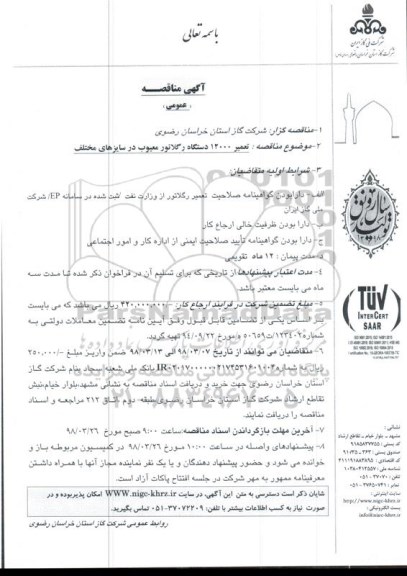 باسمه تعالی
شرکت ملی گاز ایران
آگهی مناقصه
(عمومی)
۱-مناقصه گزار: شرکت گاز استان خراسان رضوی
۲-موضوع مناقصه : تعمیر ۱۲۰۰۰ دستگاه رگلاتور معیوب در سایزهای مختلف
۳- شرایط اولیه متقاضیان
الف- دارابودن گواهینامه صلاحیت تعمیر رگلاتور از وزارت نفت /ثبت شده در سامانه EP/ شرکت
ملی گاز ایران
ب- دارا بودن ظرفیت خالی ارجاع کار
ج- دارا بودن گواهینامه تأیید صلاحیت ایمنی از اداره کار و امور اجتماعی
د- مدت پیمان : ۱۲ ماه تقویمی
۴- مدت اعتبار پیشنهادها از تاریخی که برای تسلیم آن در فراخوان ذکر شده تا مدت سه
ماه می بایست معتبر باشد.
۵- مبلغ تضمین شرکت در فرایند ارجاع کار ریال می باشد که می بایست
بر اساس یکی از تضامین قابل قبول وفق آیین نامه تضمین معاملات دولتی به
مورخ ۹۴/۰۹/۲۲ تهیه گردد.
۶- متقاضیان می توانند از تاریخ ۹۸/۰۳/۰۷ الی ۹۸/۰۳/۱۳ ضمن واریز مبلغ ۲۵۰,۰۰۰
ریال به شماره بانک ملی شعبه بسجاد بنام شرکت گاز
استان خراسان رضوی جهت خرید و دریافت اسناد مناقصه به نشانی مشهد،بلوار خیام،نبش
تقاطع ارشاد شرکت گاز استان خراسان رضوی طبقه دوم اتاق ۲۱۲ مراجعه و اسناد
مناقصه را دریافت نمایند.
۷- آخرین مهلت بازگرداندن اسناد مناقصه:ساعت ۹:۰۰ صبح مورخ ۹۸/۰۳/۲۶
۸- پیشنهادهای واصله در ساعت ۱۰:۰۰ مورخ ۹۸/۰۳/۲۶ در کمیسیون مربوطه باز و
خوانده می شود و حضور پیشنهاد دهندگان و یا یک نفر نماینده مجاز آنها با همراه داشتن
معرفینامه ممهور به مهر شرکت در جلسه افتتاح پاکات آزاد است.
شایان ذکر است دسترسی به متن این آگهی، در سایت WWW.nigc-khrz.ir امکان پذیربوده و در
صورت نیاز به کسب اطلاعات بیشتر با تلفن: ۳۷۰۷۲۲۰۹-۰۵۱ تماس بگیرید.
روابط عمومی شرکت گاز استان خراسان رضوی
TÜV
INTERCERT
SAAR
نشانی :
مشهد - بلوار خیام - تقاطع ارشاد